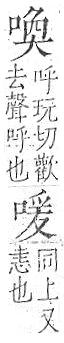 喚
呼玩切歡
去聲呼也
喛
同上又
恚也